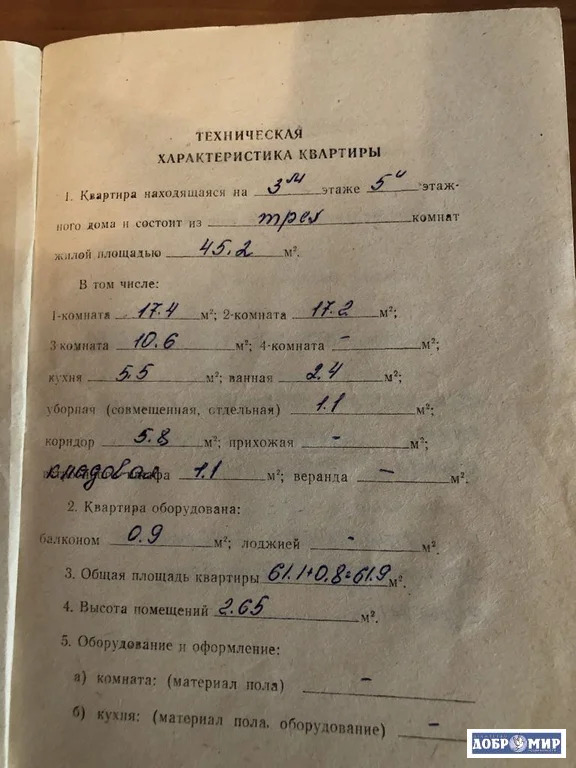 ТЕХНИЧЕСКАЯ
ХАРАКТЕРИСТИКА КВАРТИРЫ
1. Квартира находящаяся на 3м этаже 5и этаж-
ного дома и состоит из трех комнат
жилой площадью 45.2 м².
В том числе:
1-комната 17.4 м²; 2-комната 17.2 м²;
3 комната 10.6 м²; 4-комната - м²;
кухня 5.5 м²; ванная 2.4 м²;
уборная (совмещенная, отдельная) 1.1 м²;
коридор 5.8 м²; прихожая - м²;
кладовая 1.1 м²; веранда - м².
2. Квартира оборудована:
балконом 0.9 м²; лоджией - м².
3. Общая площадь квартиры 61.1+0.8=61.9 м².
4. Высота помещений 2.65 м².
5. Оборудование и оформление:
а) комната: (материал пола) -
б) кухня: (материал пола, оборудование) -
ДОБРОМИР